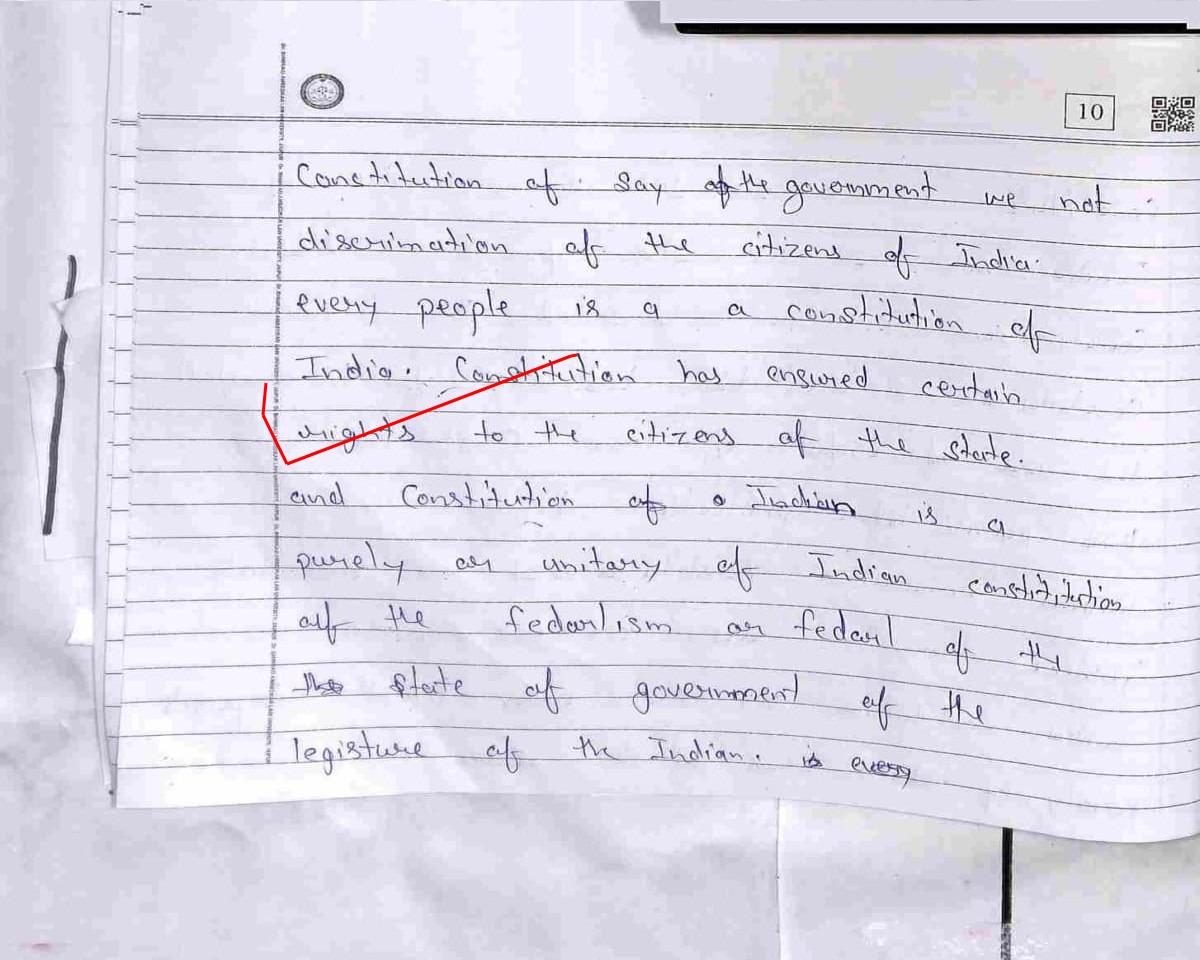 10
Constitution of say of the government we not
discrimation of the citizens of India.
every people is a a constitution of
India. Constitution has ensured certain
rights to the citizens of the state.
and Constitution of Indian is a
purely or unitary of Indian constitution
of the fedarlism or fedarl of the
the state of government of the
legisture of the Indian. is every